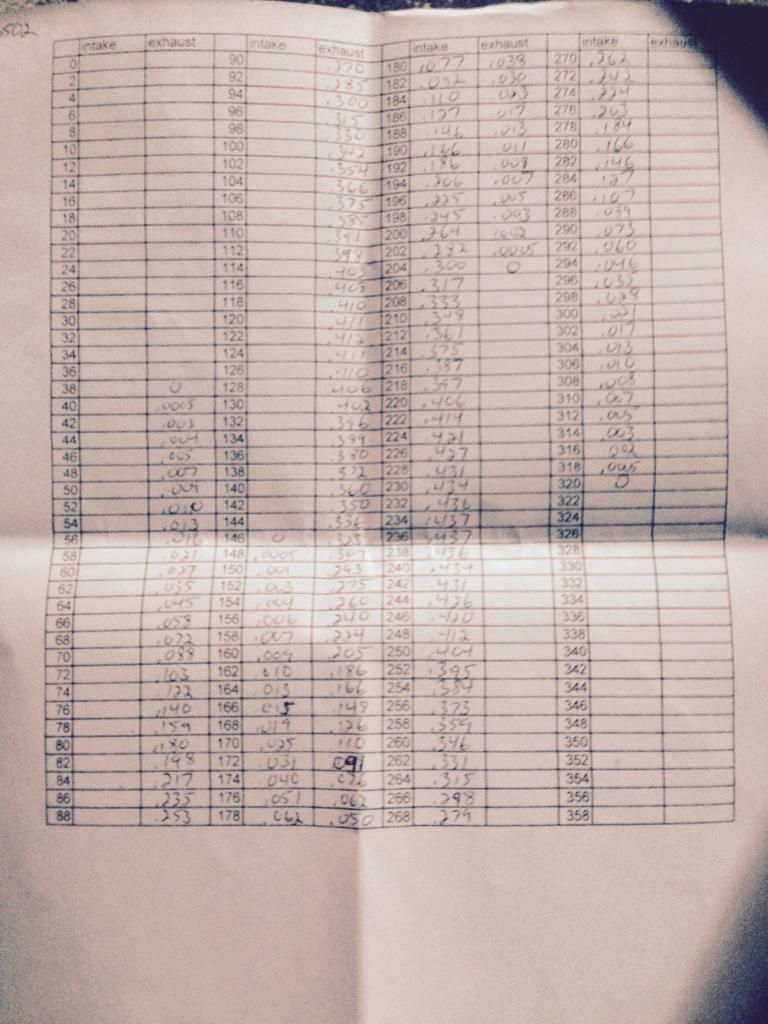 502
intake exhaust intake exhaust intake exhaust intake exhaust
0 90 .270 180 .077 .038 270 .262
2 92 .285 182 .092 .030 272 .242
4 94 .300 184 .110 .023 274 .224
6 96 .315 186 .127 .017 276 .203
8 98 .330 188 .146 .013 278 .184
10 100 .342 190 .166 .011 280 .166
12 102 .354 192 .186 .008 282 .146
14 104 .366 194 .206 .007 284 .127
16 106 .375 196 .225 .005 286 .107
18 108 .385 198 .245 .003 288 .089
20 110 .391 200 .264 .002 290 .073
22 112 .398 202 .282 .0005 292 .060
24 114 .403 204 .300 0 294 .046
26 116 .408 206 .317 296 .037
28 118 .410 208 .333 298 .028
30 120 .411 210 .348 300 .021
32 122 .412 212 .361 302 .017
34 124 .411 214 .375 304 .013
36 126 .410 216 .387 306 .010
38 0 128 .406 218 .397 308 .008
40 .0005 130 .402 220 .406 310 .007
42 .002 132 .396 222 .414 312 .005
44 .004 134 .389 224 .421 314 .003
46 .005 136 .380 226 .427 316 .002
48 .007 138 .372 228 .431 318 .005
50 .009 140 .360 230 .434 320 0
52 .010 142 .350 232 .436 322
54 .013 144 .336 234 .437 324
56 .016 146 0 .323 236 .437 326
58 .021 148 .0005 .307 238 .436 328
60 .027 150 .001 .293 240 .434 330
62 .035 152 .003 .275 242 .431 332
64 .045 154 .004 .260 244 .426 334
66 .058 156 .006 .240 246 .420 336
68 .072 158 .007 .224 248 .412 338
70 .088 160 .009 .205 250 .404 340
72 .103 162 .010 .186 252 .395 342
74 .122 164 .013 .166 254 .384 344
76 .140 166 .015 .148 256 .373 346
78 .159 168 .019 .126 258 .359 348
80 .180 170 .025 .110 260 .346 350
82 .198 172 .031 .091 262 .331 352
84 .217 174 .040 .076 264 .315 354
86 .235 176 .051 .062 266 .298 356
88 .253 178 .062 .050 268 .279 358